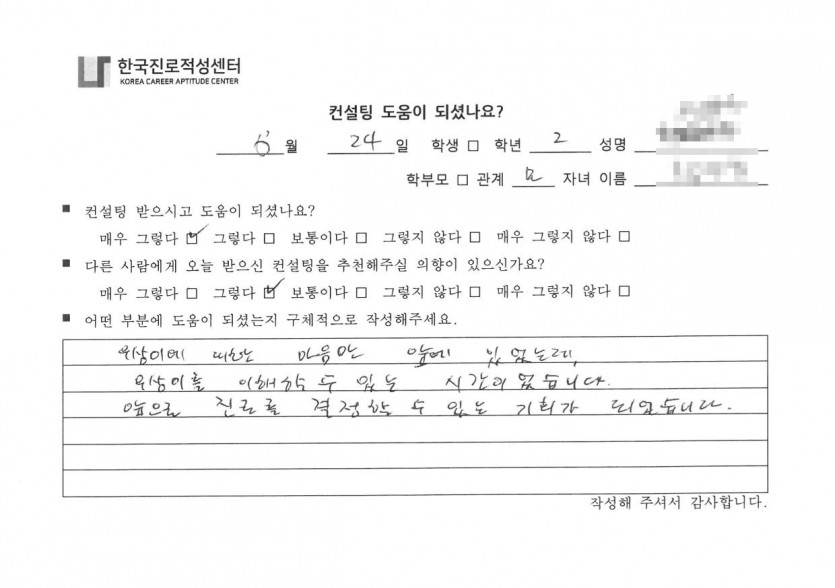 한국진로적성센터
KOREA CAREER APTITUDE CENTER
컨설팅 도움이 되셨나요?
6월 24일 학생 □ 학년 2 성명
학부모 □ 관계 모 자녀 이름
■ 컨설팅 받으시고 도움이 되셨나요?
매우 그렇다 ☑ 그렇다 □ 보통이다 □ 그렇지 않다 □ 매우 그렇지 않다 □
■ 다른 사람에게 오늘 받으신 컨설팅을 추천해주실 의향이 있으신가요?
매우 그렇다 □ 그렇다 ☑ 보통이다 □ 그렇지 않다 □ 매우 그렇지 않다 □
■ 어떤 부분에 도움이 되셨는지 구체적으로 작성해주세요.
마음만 앞에 있었는데,
이해할 수 있는 시간이었습니다.
앞으로 진로를 결정할 수 있는 기회가 되었습니다.
작성해 주셔서 감사합니다.